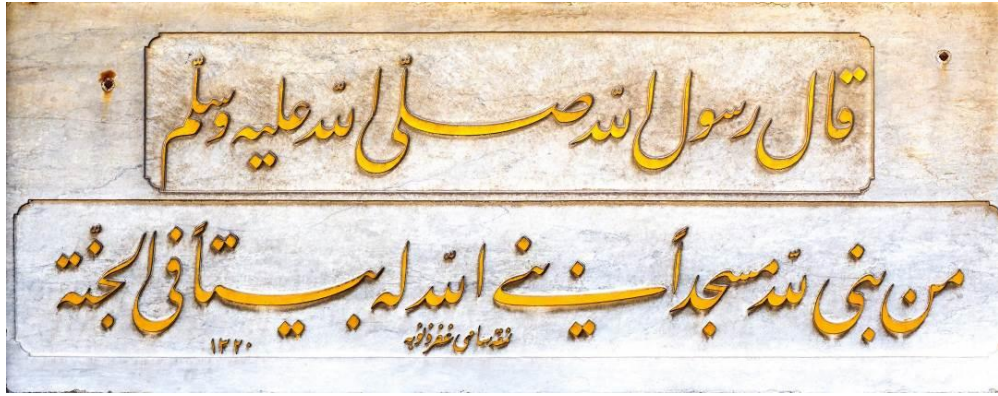 قال رسول الله صلّى الله عليه وسلّم
من بنى لله مسجداً يبنى الله له بيتاً فى الجنّة
نمقه سامى غفر ذنوبه ١٣٢٠